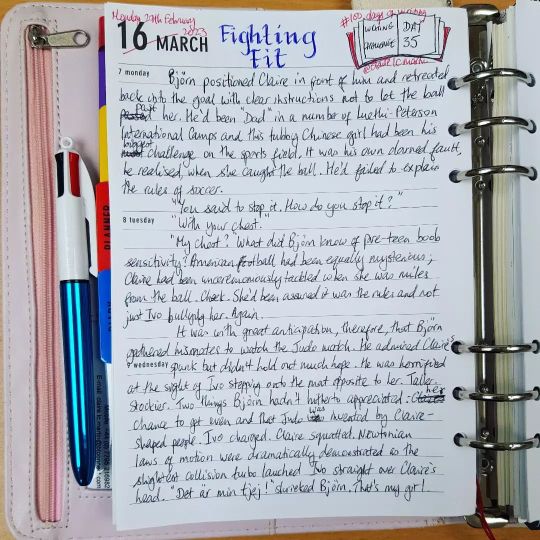 Monday 27th February
2023
16 MARCH
Fighting
Fit
#100 days of writing
WRITING DAY
CHALLENGE 35
7 monday
Björn positioned Claire in front of him and retreated
back into the goal with clear instructions not to let the ball
past her. He'd been "Dad" in a number of Luethi-Peterson
International Camps and this tubby Chinese girl had been his
biggest challenge on the sports field. It was his own darned fault,
he realised, when she caught the ball. He'd failed to explain
the rules of soccer.
"You said to stop it. How do you stop it?"
8 tuesday
"With your chest."
"My chest?" What did Björn know of pre-teen boob
sensitivity? American football had been equally mysterious;
Claire had been unceremoniously tackled when she was miles
from the ball. She'd been assured it was the rules and not
just Ivo bullying her. Again.
It was with great anticipation, therefore, that Björn
gathered his mates to watch the Judo match. He admired Claire's
9 wednesday
spunk but didn't hold out much hope. He was horrified
at the sight of Ivo stepping onto the mat opposite to her. Taller.
Stockier. Two things Björn hadn't hitherto appreciated: her
chance to get even and that Judo was invented by Claire-
shaped people. Ivo charged. Claire squatted. Newtonian
laws of motion were dramatically demonstrated as the
slightest collision turbo launched Ivo straight over Claire's
head. "Det är min tjej!" shrieked Björn. That's my girl.
PLANNER
DIARY